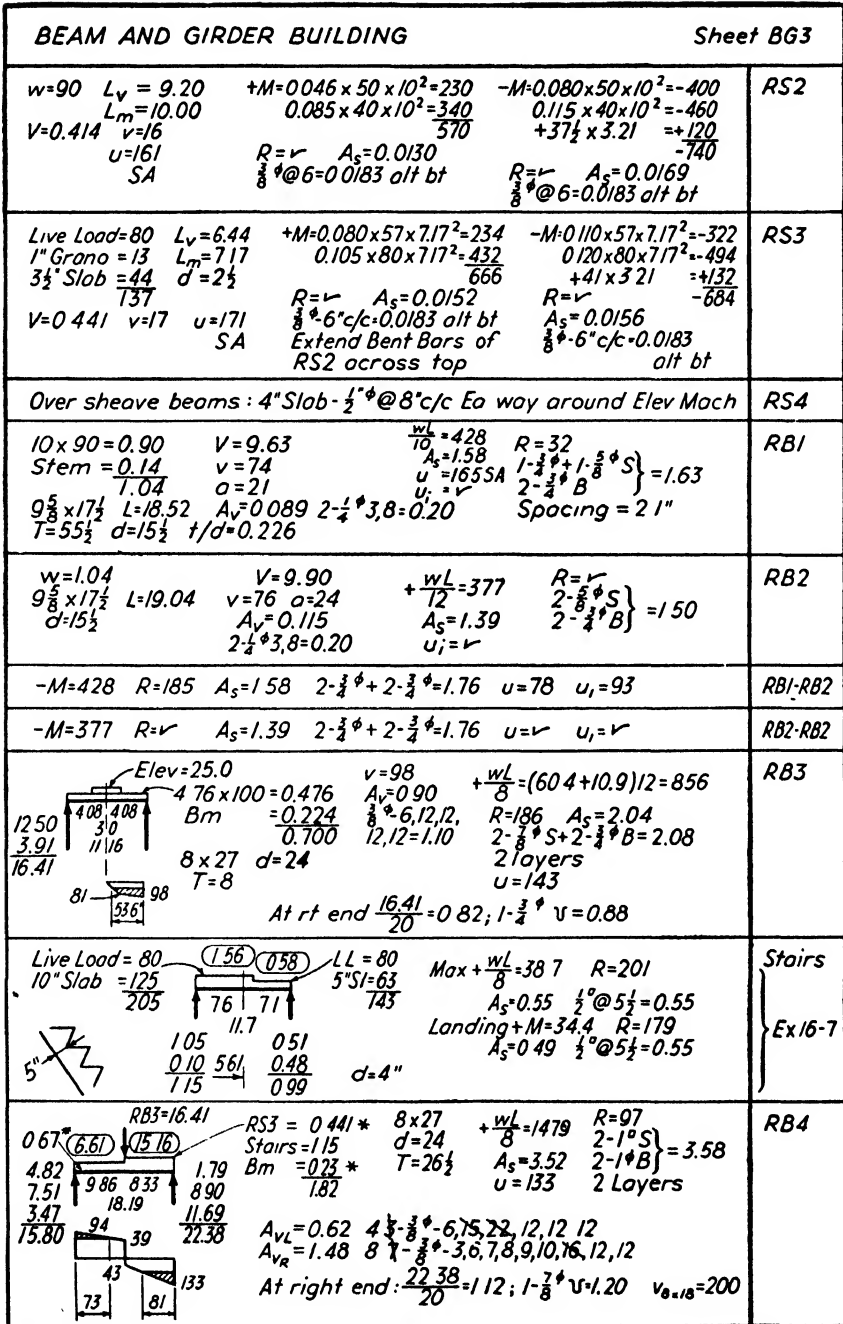 BEAM AND GIRDER BUILDING Sheet BG3
w=90 Lv = 9.20 +M=0 046 x 50 x 10²=230 -M=0.080x50x10²=-400 RS2
Lm=10.00 0.085 x 40x10²=340 0.115 x 40x10²=-460
V=0.414 v=16 570 +37½ x 3.21 =+120
u=161 R=✓ As=0.0130 -740
SA ⅜ᶲ@6=0 0183 alt bt R=✓ As=0.0169
⅜ᶲ@6=0.0183 alt bt
Live Load=80 Lv=6.44 +M=0.080x57x7.17²=234 -M=0 110x57x7.17²=-322 RS3
1" Grano =13 Lm=7 17 0.105 x 80x7 17²=432 0 120x80x7 17²=-494
3½" Slab =44 d=2½ 666 +41x3 21 =+132
137 R=✓ As=0.0152 R=✓ -684
V=0 441 v=17 u=171 ⅜ᶲ-6"c/c=0.0183 alt bt As=0.0156
SA Extend Bent Bars of ⅜ᶲ-6"c/c=0.0183
RS2 across top alt bt
Over sheave beams : 4"Slab-½"ᶲ@8"c/c Ea way around Elev Mach RS4
10 x 90=0.90 V=9.63 wL/10 =428 R=32 RB1
Stem =0.14 v=74 As=1.58 1-¾ᶲ+1-⅝ᶲ S } =1.63
1.04 a=21 u =165SA 2-¾ᶲ B
9⅝x17½ L=18.52 Av=0 089 2-¼ᶲ 3,8=0.20 ui =✓ Spacing = 2 1"
T=55½ d=15½ t/d=0.226
w=1.04 V=9.90 + wL/12 =377 R=✓ RB2
9⅝x17½ L=19.04 v=76 a=24 2-⅝ᶲ S } =1 50
d=15½ Av=0.115 As=1.39 2-¾ᶲ B
2-¼ᶲ 3,8=0.20 ui=✓
-M=428 R=185 As=1 58 2-¾ᶲ+ 2-¾ᶲ=1.76 u=78 u,=93 RB1-RB2
-M=377 R=✓ As=1.39 2-¾ᶲ+ 2-¾ᶲ=1.76 u=✓ u,=✓ RB2-RB2
Elev=25.0 v=98 + wL/8 =(60 4+10.9)12=856 RB3
4 76 x100=0.476 Av=0 90
4 08 4 08 Bm =0.224 ⅜ᶲ-6,12,12, R=186 As=2.04
12 50 3 0 0.700 12,12=1.10 2-⅞ᶲ S+2-¾ᶲ B=2.08
3.91 11 16 8 x 27 d=24 2 layers
16.41 T=8 u=143
81 98
5 36
At rt end 16.41/20 =0 82; 1-¾ᶲ U=0.88
Live Load= 80 1 56 0 58 LL = 80 Max + wL/8 =38 7 R=201 Stairs
10" Slab =125 5"Sl=63 As=0.55 ½□@5½=0.55
205 7 6 7 1 143 Landing+M=34.4 R=179 Ex 16-7
11.7 As=0 49 ½□@5½=0.55
1 05 0 51
5" 0 10 5 61 0.48 d=4"
1 15 0 99
RB3=16.41 RS3 = 0 441* 8x27 + wL/8 =1479 R=97 RB4
0 67* 6.61 15 16 Stairs=1 15 d=24 2-1□ S } =3.58
4.82 1.79 Bm =0 23* T=26½ As=3.52 2-1ᶲ B
7.51 9 86 8 33 8 90 1.82 u=133 2 Layers
3.47 18.19 11.69
15.80 94 39 22.38 AvL=0.62 4 5-⅜ᶲ-6,15,22, 12,12 12
AvR=1.48 8 7-⅜ᶲ-3,6,7,8,9,10,16,12,12
43 133
73 81 At right end: 22 38/20 =1 12; 1-⅞ᶲ U=1.20 v8=18=200